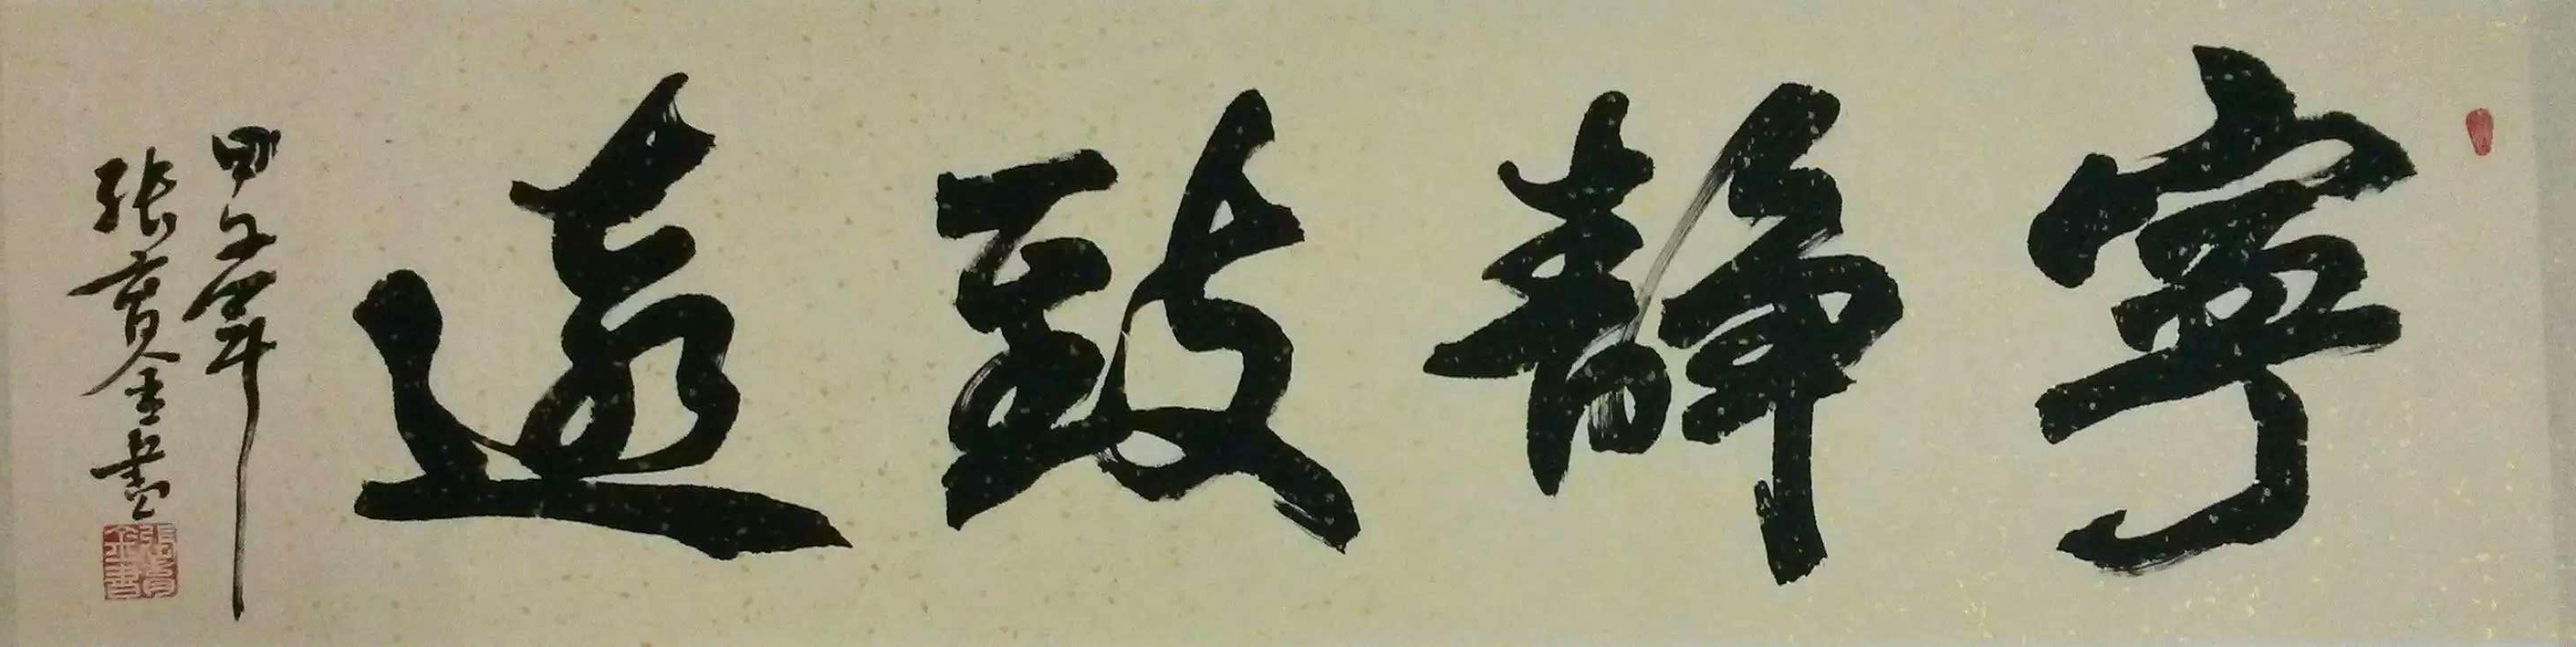 寧靜致遠
甲午年
張育金書
張育金書